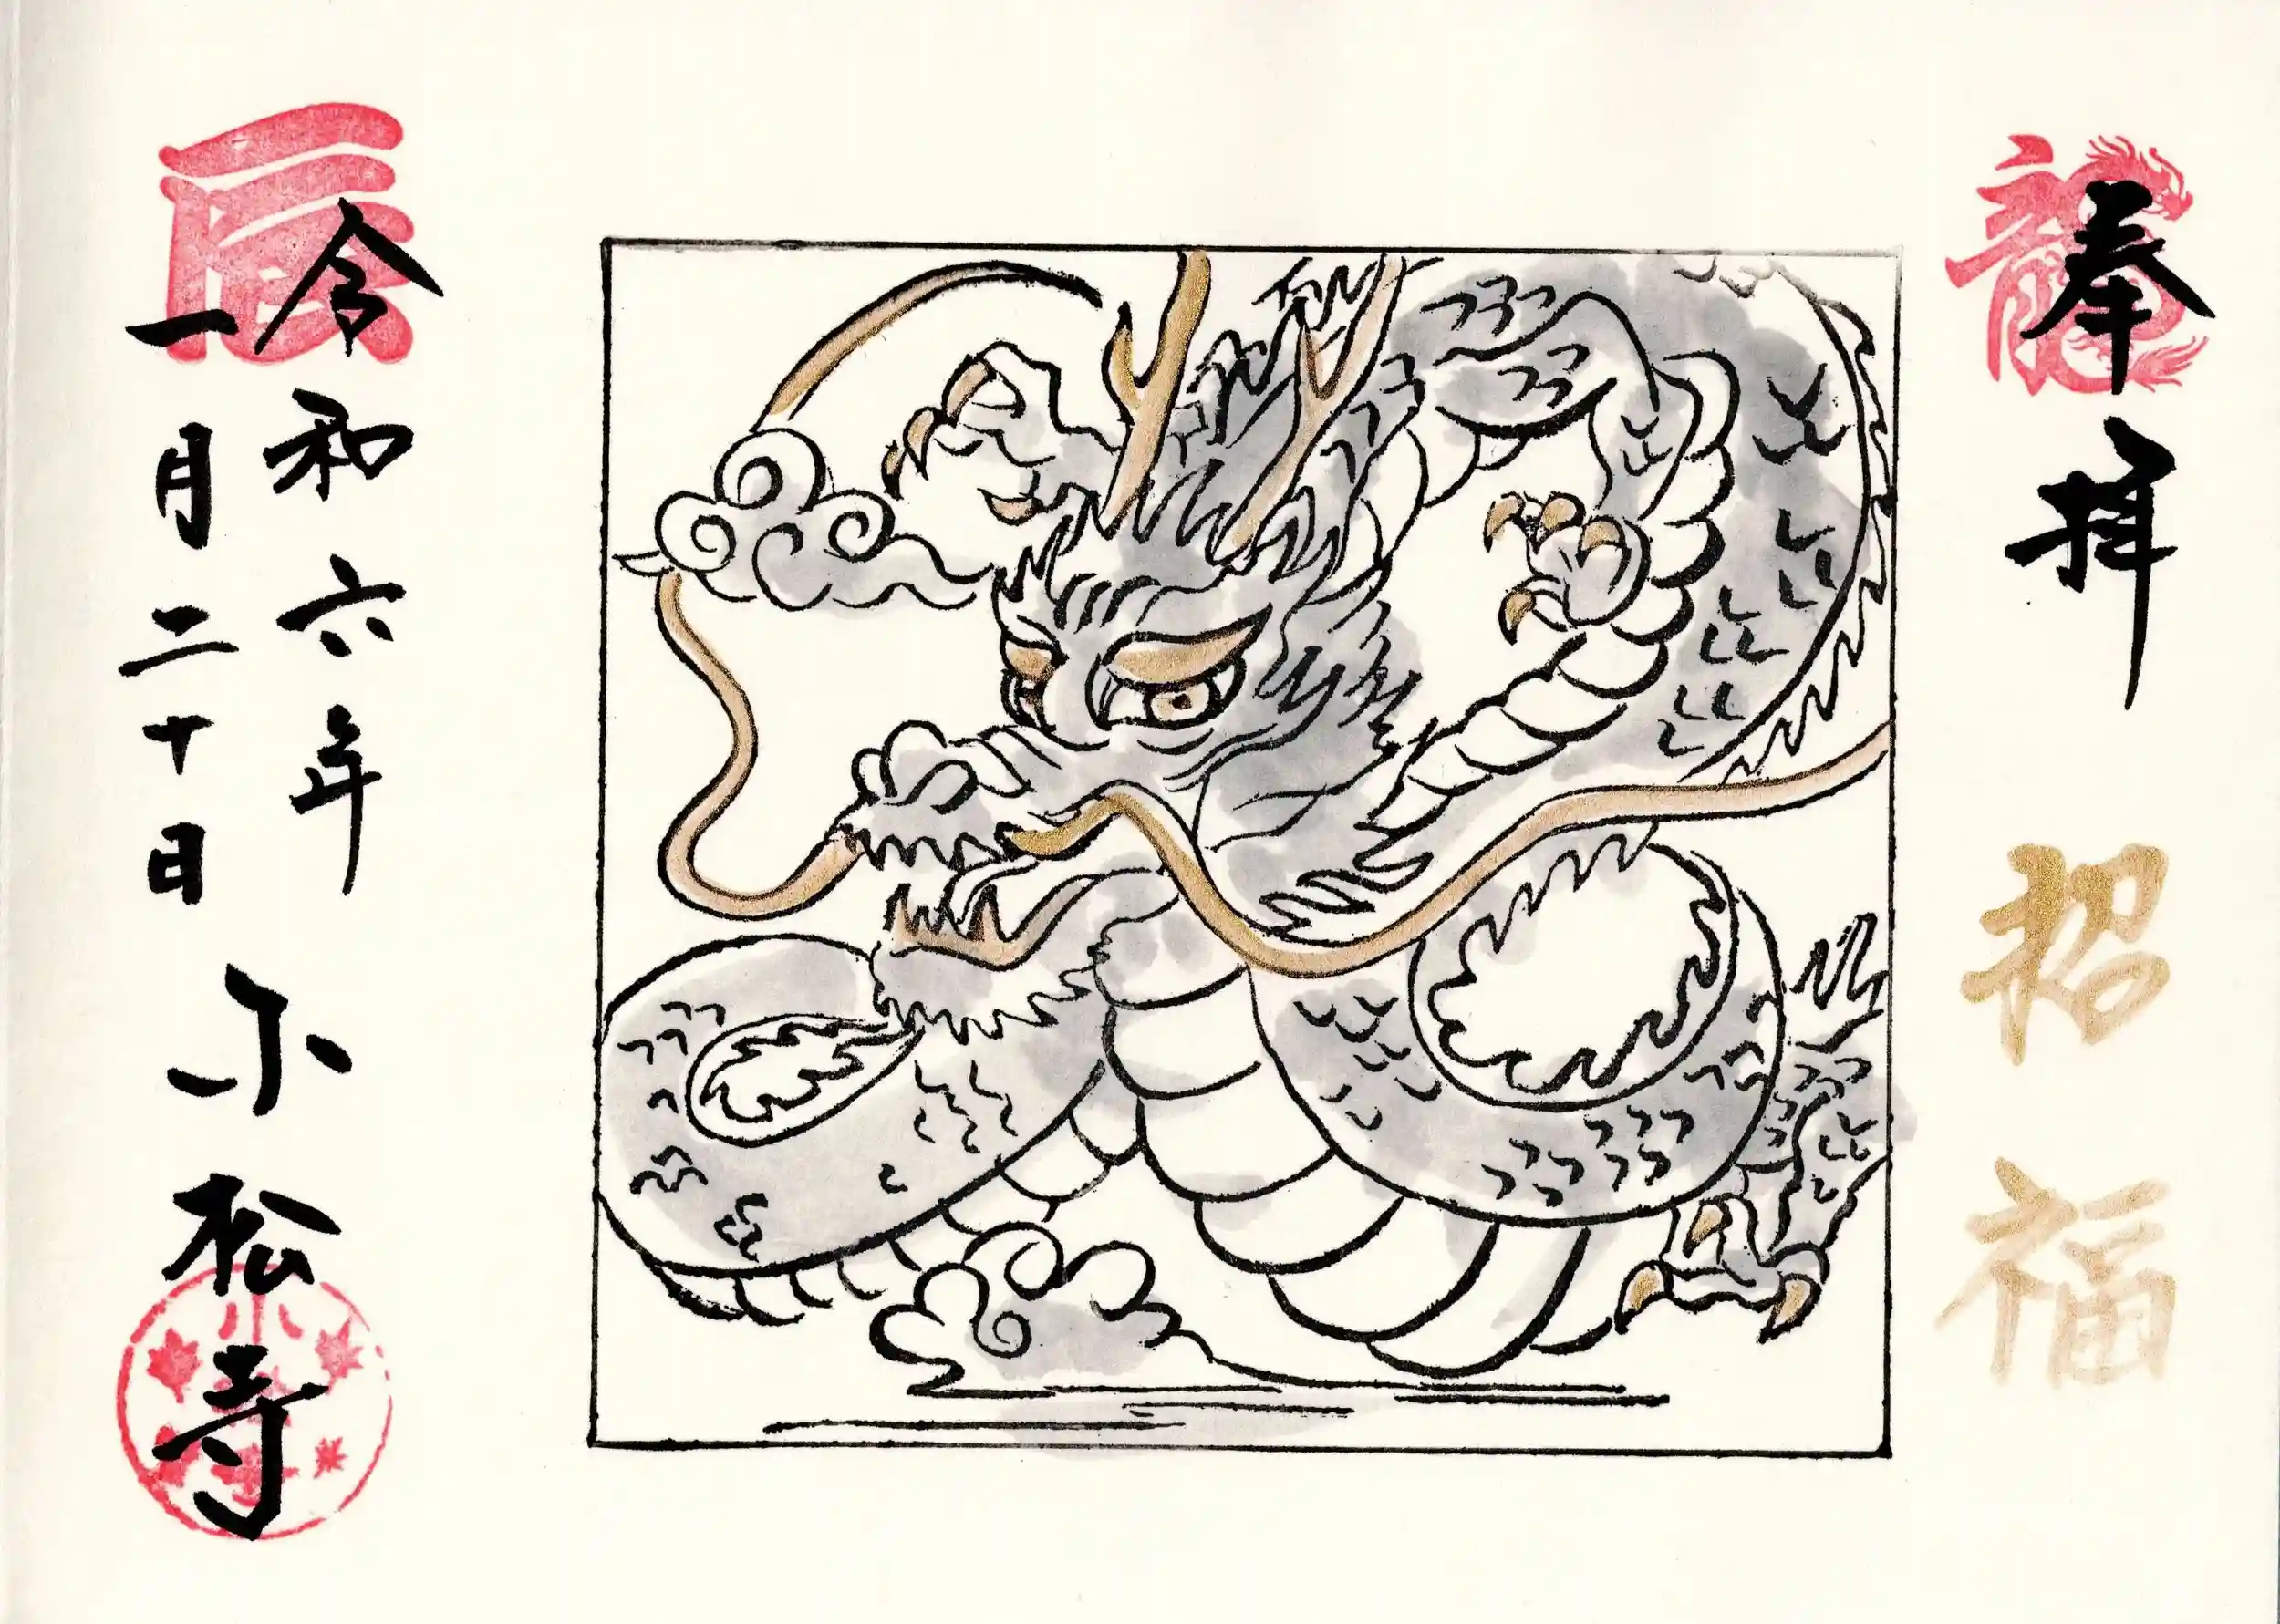 奉拝
招福
龍
辰
令和六年
一月二十日
小松寺